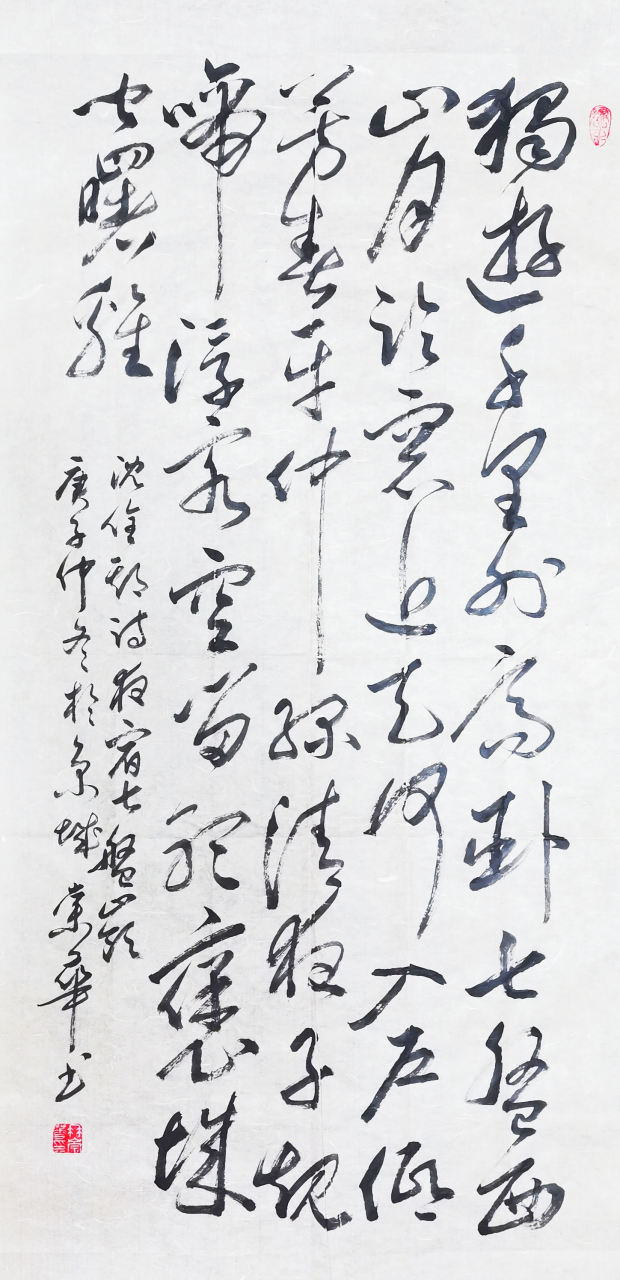 獨遊千里外高卧七盤西
山月臨窓近天河入户低
芳春平仲綠清夜子規
啼浮客空留聽褒城
聞曙雞
沈佺期詩夜宿七盤嶺
庚子仲冬於京城華书